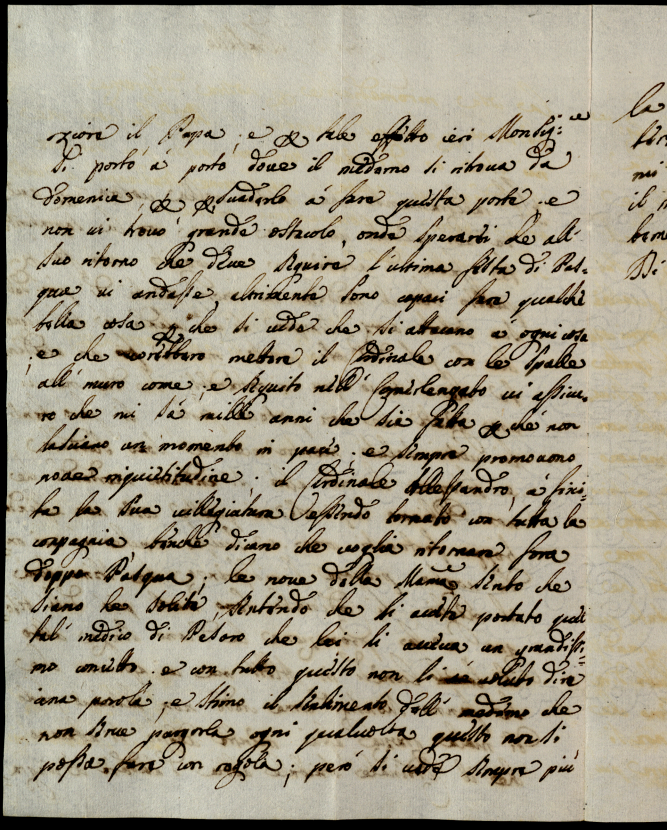 zione il Papa, e per tale effetto ieri Monsig:re
si portò á porto dove il medemo si ritrova da
domenica, per persuaderlo á fare questa porta, e
non vi trovò grande ostacolo, onde sperarei che all'
suo ritorno che deve seguire l'ultima festa di Pas-
qua vi andasse, altrimente sono capaci fare qualche
bella cosa per che si vede che si attacano a ogni cosa
, e che vorebbero mettere il Cardinale con le spalle
all' muro come, e seguito nell' Camerlengato vi assicu-
ro che mi sá mille anni che sia fatta per che non
lasciano un momento in pace, e sempre promovono
nove inquietitudine; il Cardinale Allessandro, á fini-
ta la sua villegiatura essendo tornato con tutta la
compagnia benche dicano che voglia ritornare fora
doppo Pasqua; le nove della Mama sento che
siano le solite, sentendo che li avete portato quel
tal' medico di Pesaro che lei li aveva un grandissi-
mo concetto, e con tutto questo non li voluto dire
una parola, e stimo il sentimento dell' medemo che
non serve purgarla ogni qualvolta questo non si
possa fare con regola; però si vede sempre più
la
il